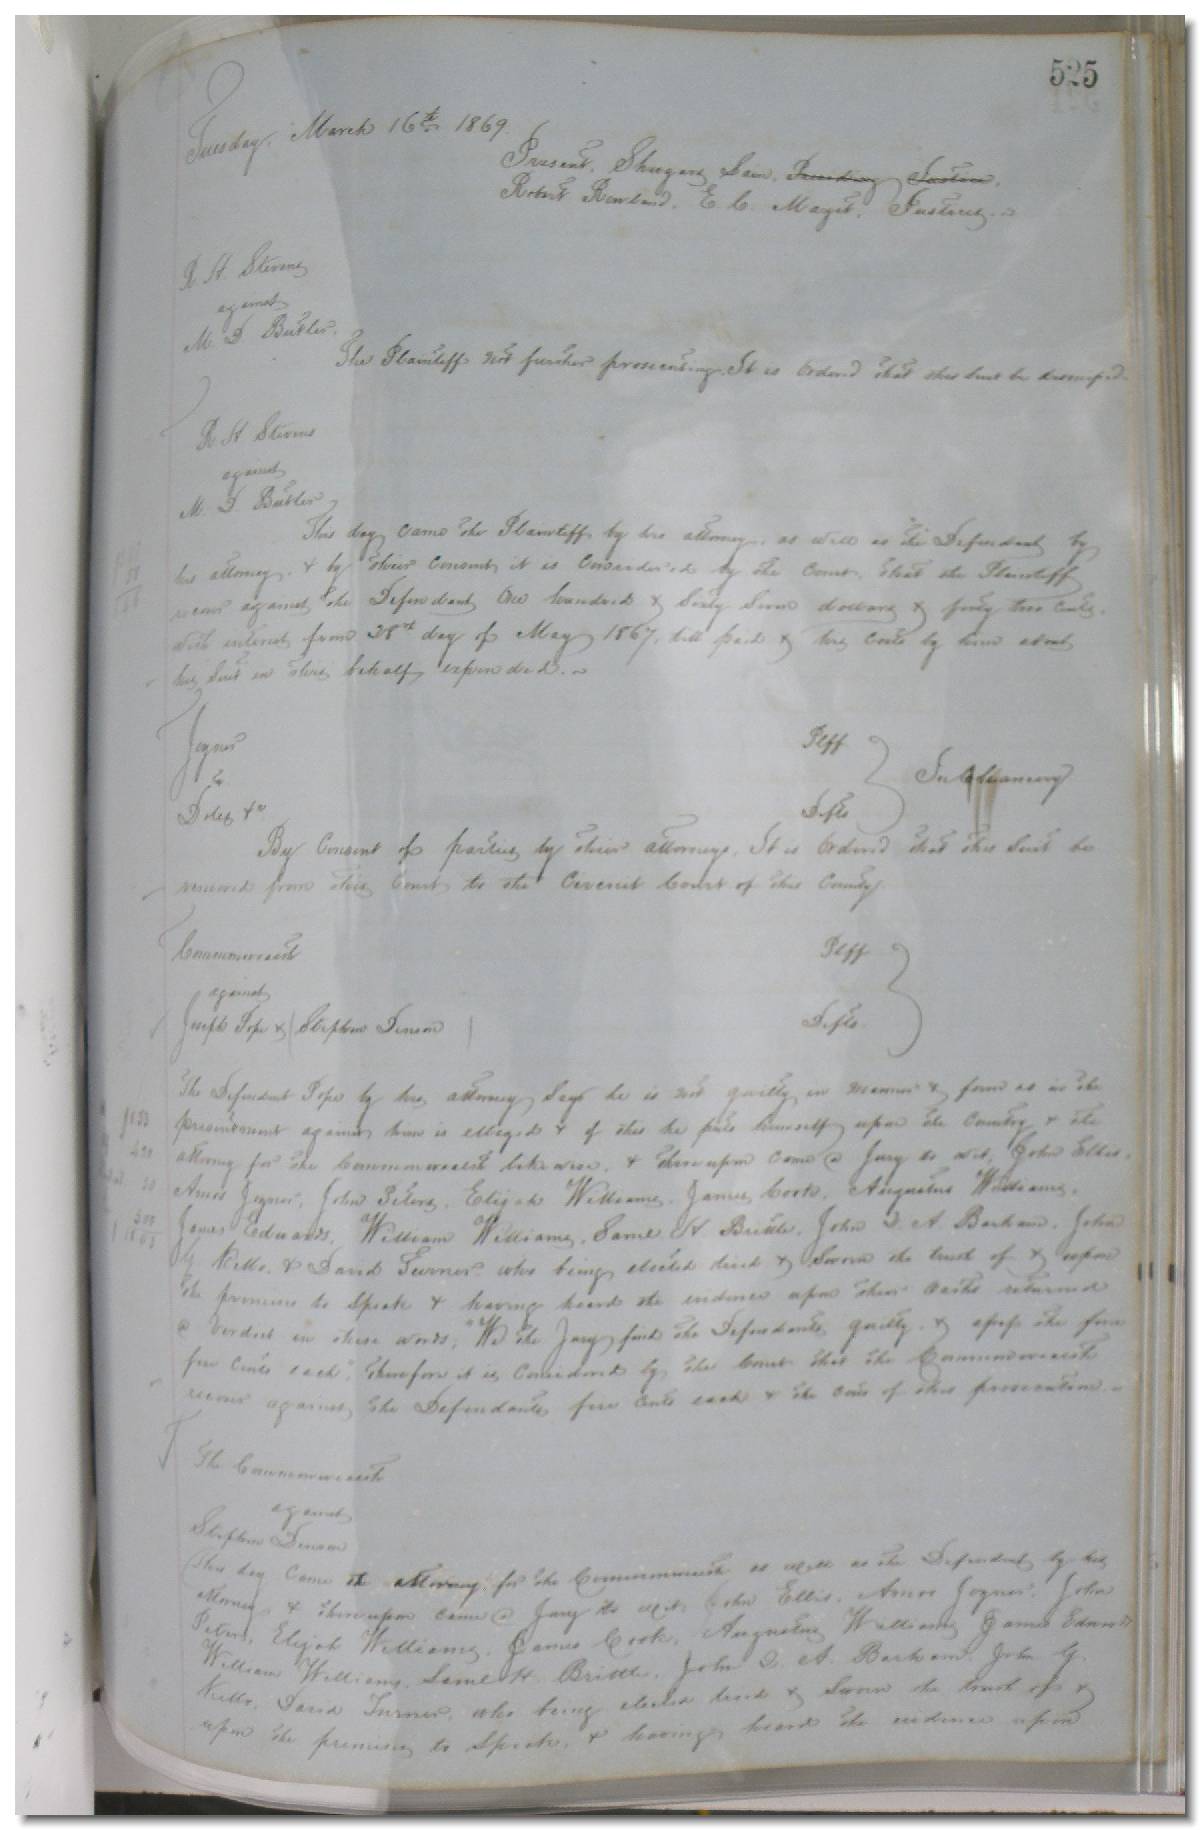 525
Tuesday, March 16th 1869.
Present, Shugars Lain, Presiding Justice,
Robert Rowland, E. C. Mayet, Justices.
R. H. Stevens
against
M. D. Butler.
The Plaintiff not further prosecuting. It is Ordered that this Suit be dismissed.
R. H Stevens
against
M. D. Butler
This day came the Plaintiff by his attorney, as well as the Defendant by
his attorney, & by their Consent it is Considered by the Court, that the Plaintiff
recover against the Defendant One hundred & Sixty Seven dollars & fifty two cents,
with interest from 28th day of May 1867, till paid & his Costs by him about
his Suit in this behalf expended.
Joyner Plff
&
Doles &c Defts In Chancery
By Consent of parties by their attorneys, It is Ordered that this Suit be
removed from this Court to the Circuit Court of this County.
Commonwealth Plff
against
Joseph Pope & (Stephen Denson) Defts
The Defendant Pope by his attorney Says he is not guilty in manner & form as in the
presentment against him is alleged & of this he puts himself upon the Country & the
attorney for the Commonwealth likewise, & thereupon came a Jury to wit, John Ellis,
Amos Joyner, John Peters, Elijah Williams, James Cook, Augustus Williams,
James Edwards, William Williams, Saml H Brittle, John D. A. Barham, John
Y. Kello, & David Turner who being elected tried & Sworn the truth of & upon
the premises to Speak & having heard the evidence upon their oaths returned
a Verdict in these words, "We the Jury find the Defendants guilty, & assess the fine
five Cents each", therefore it is Considered by the Court that the Commonwealth
recover against the Defendants five Cents each & the Costs of this prosecution.
The Commonwealth
against
Stephen Denson
This day Came the attorney for the Commonwealth as well as the Defendant by his
attorney & thereupon came a Jury to wit, John Ellis, Amos Joyner, John
Peters, Elijah Williams, James Cook, Augustus Williams James Edwards
William Williams, Saml H. Brittle, John D. A. Barham, John Y.
Kello, David Turner, who being elected tried & Sworn the truth of &
upon the premises to Speak, & having heard the evidence upon